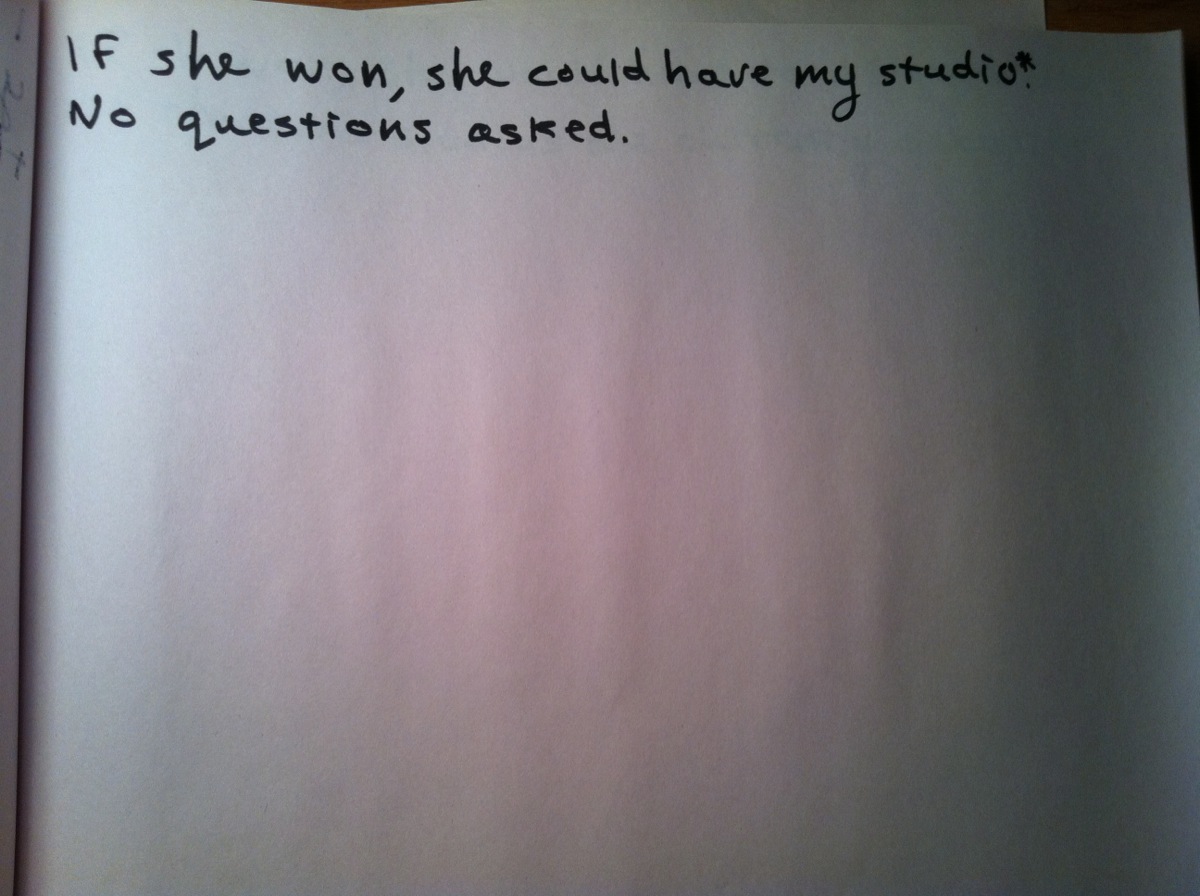 If she won, she could have my studio.*
No questions asked.